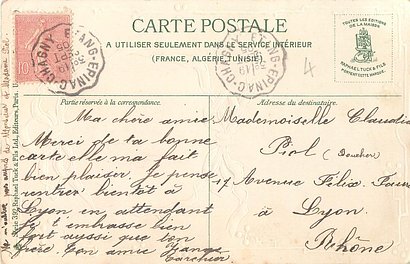 CARTE POSTALE
A UTILISER SEULEMENT DANS LE SERVICE INTÉRIEUR
(FRANCE, ALGÉRIE, TUNISIE).
TOUTES LES ÉDITIONS
DE LA MAISON
RAPHAEL TUCK & FILS
PORTENT CETTE MARQUE
ETANG-EPINAC-CHAGNY
ETANG-EPINAC-CHAGNY
10
4
Partie réservée à la correspondance.
Adresse du destinataire.
Ma chère amie
Merci de ta bonne
carte elle m'a fait
bien plaisir. Je pense
rentrer bientôt à
Lyon en attendant
je t'embrasse bien
fort aussi que ton
frère Ton amie
Mademoiselle Claudia
Piol (Boucher)
17 Avenue Félix Faure
à Lyon.
Rhône
Raphael Tuck & Fils Ltd., Editeurs, Paris.